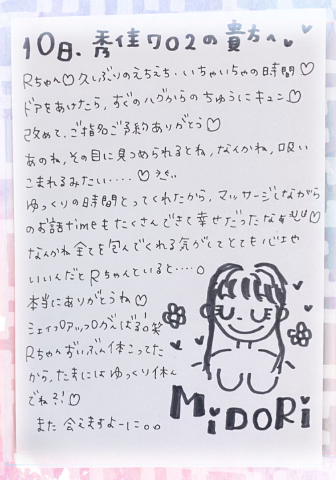 10日、秀佳702の貴方へ♡
Rちゃん♡久しぶりのえちえち・いちゃいちゃの時間♡
ドアをあけたら、すぐのハグからのちゅうにキュン♡
改めて、ご指名ご予約ありがとう♡
あのね、その目に見つめられるとね、なんかね、吸い
こまれるみたい・・・・♡
ゆっくりの時間とってくれたから、マッサージしながら
のお話timeもたくさんできて幸せだったなぁ♡
なんかね全てを包んでくれる気がしてとても心地や
いいんだとRちゃんといると・・・・。
本当にありがとうね♡
シェイクアップがんばる!笑
Rちゃんずいぶん体こってた
から、たまにはゆっくり休ん
でね?!♡
また会えますよーに。。
MiDORi